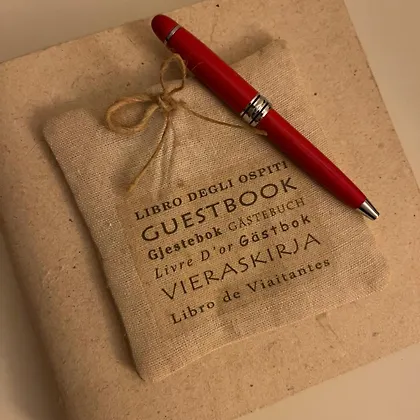 LIBRO DEGLI OSPITI
GUESTBOOK
Gjestebok GÄSTEBUCH
Livre D'or Gästbok
VIERASKIRJA
Libro de Vaitantes